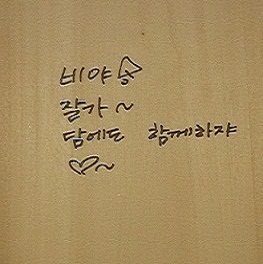 비야
잘가~
담에도 함께하쟈
♡~